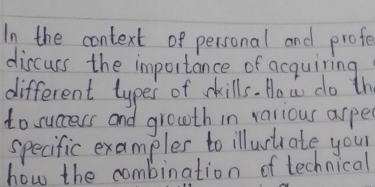 In the context of personal and profe
discuss the importance of acquiring
different types of skills. How do th
to success and growth in various aspec
specific examples to illustrate your
how the combination of technical